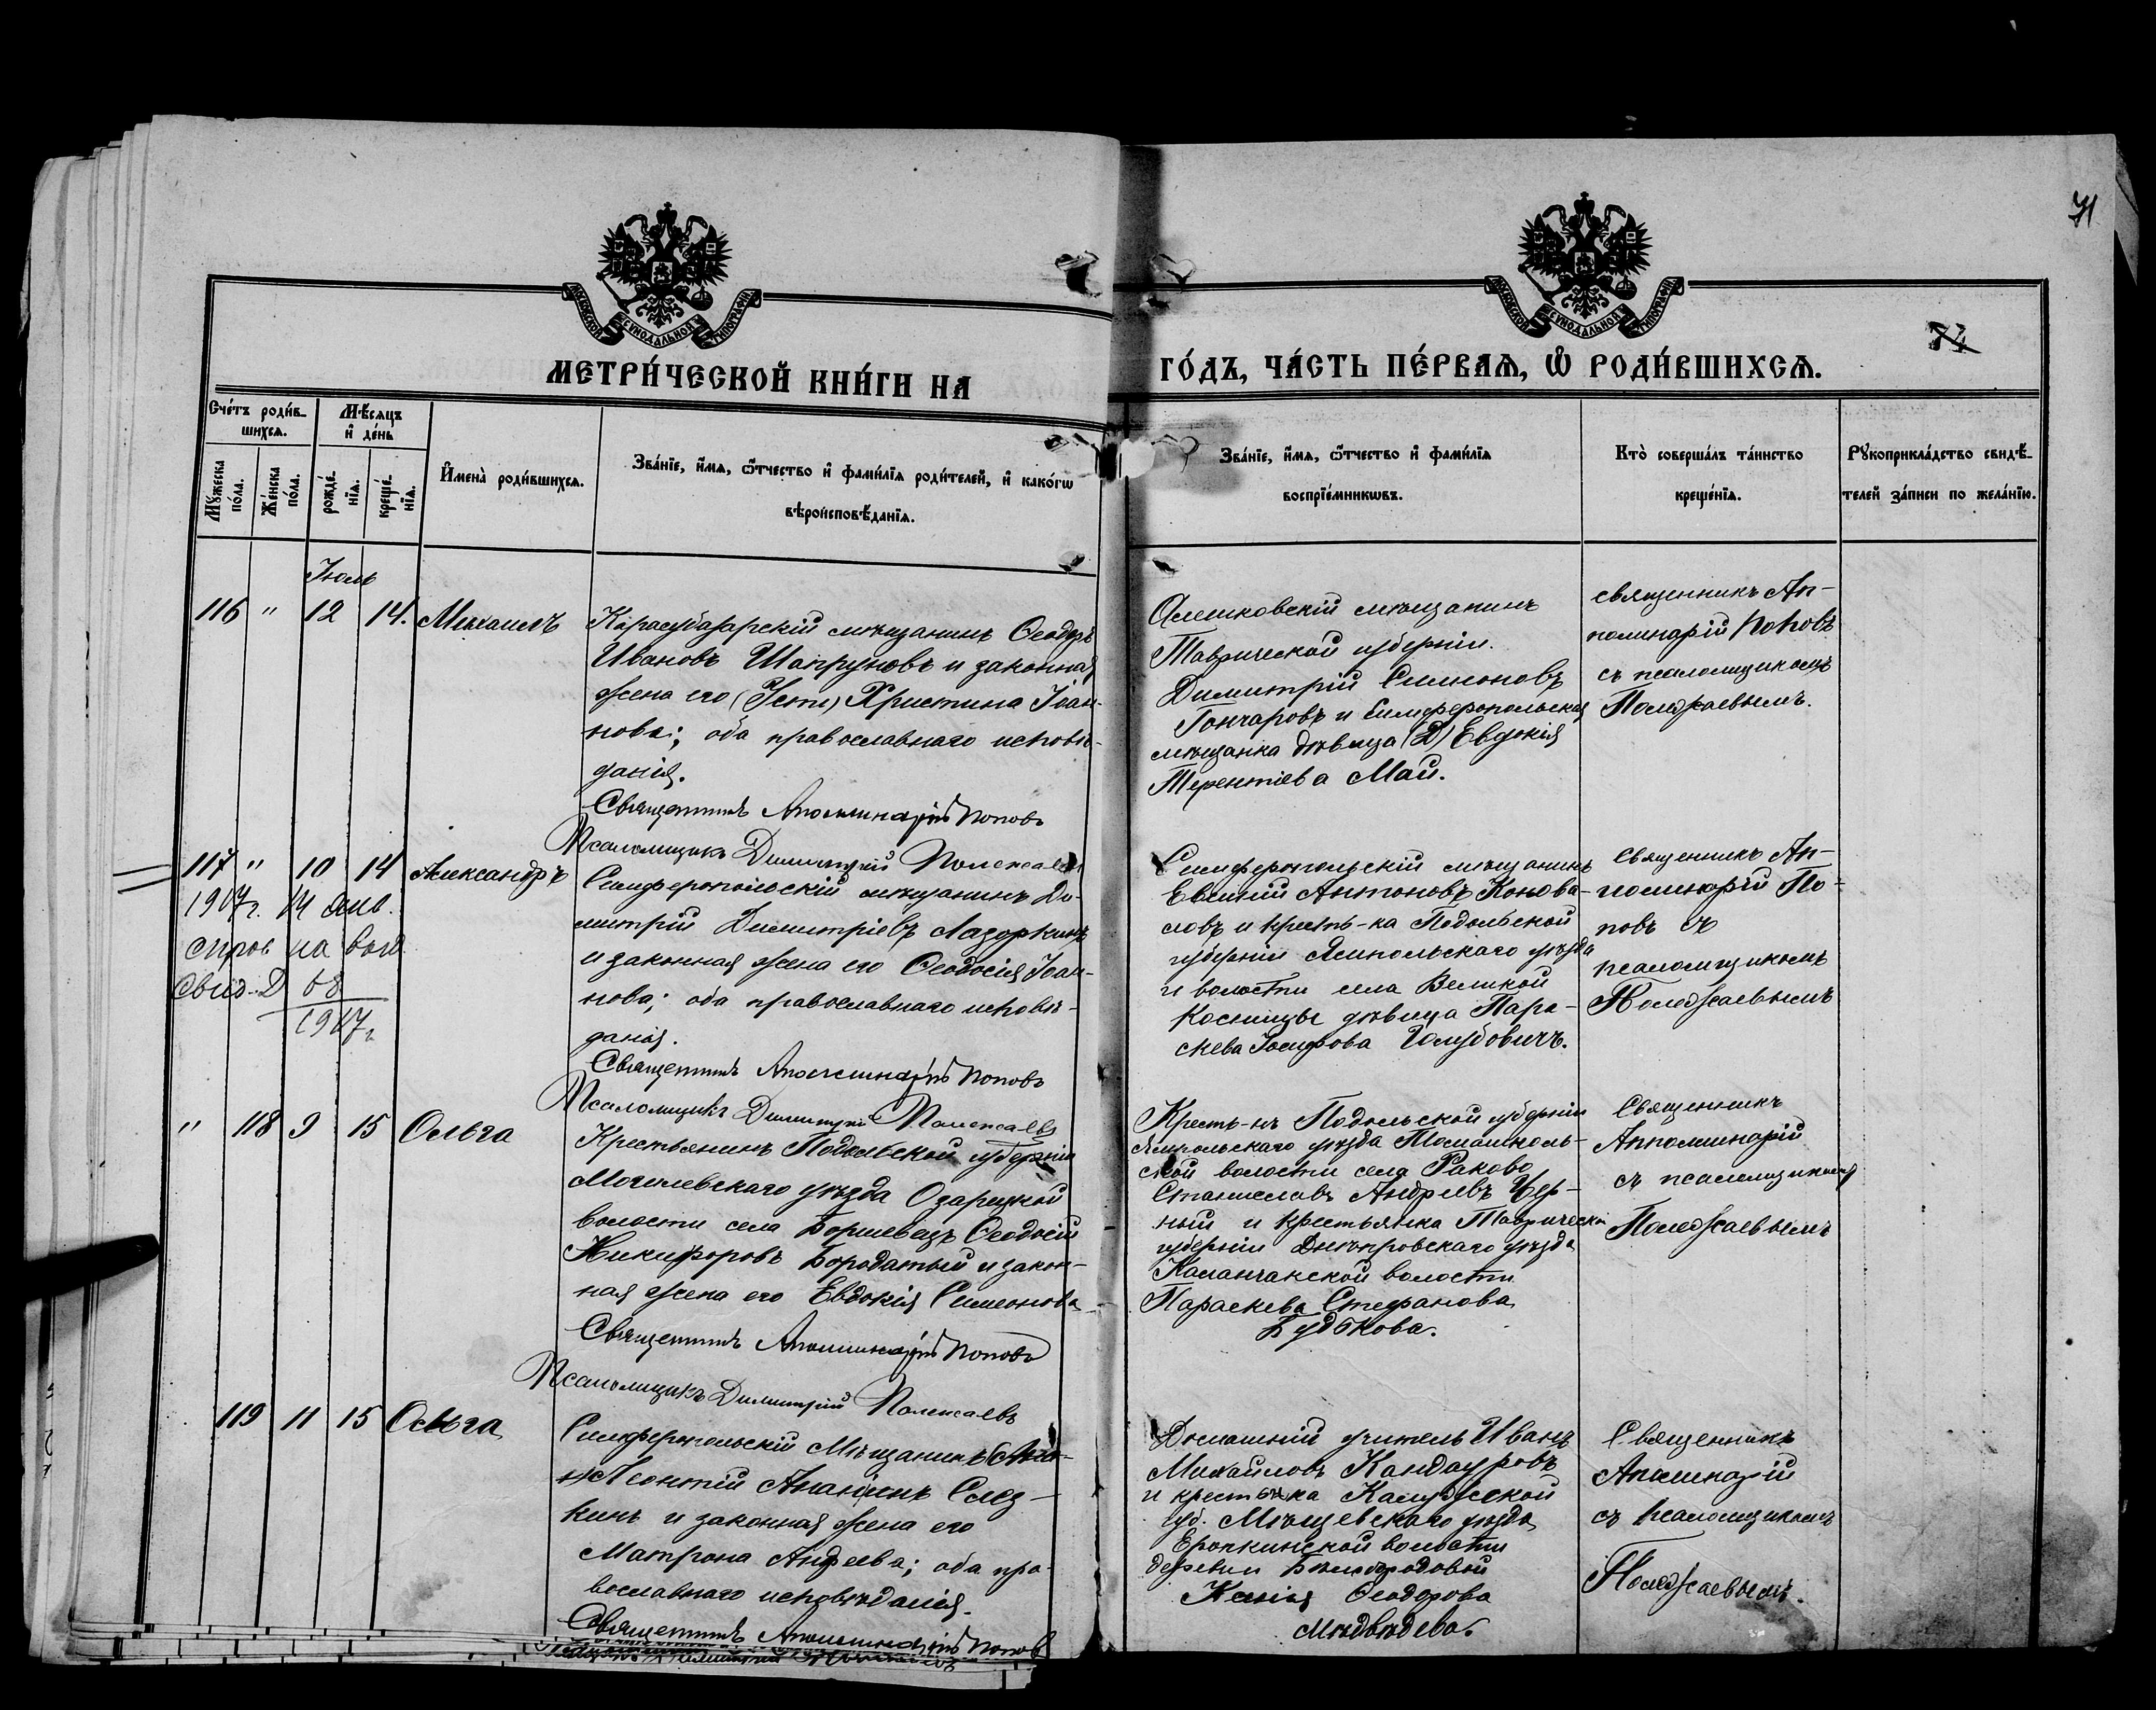 71
74
МОСКОВСКОЙ СѴНОДАЛЬНОЙ ТИПОГРАФІИ
МОСКОВСКОЙ СѴНОДАЛЬНОЙ ТИПОГРАФІИ
МЕТРИ́ЧЕСКОЙ КНИ́ГИ НА
ГО́ДЪ, ЧА́СТЬ ПЕ́РВАѦ, Ѡ РОДИ́ВШИХСѦ.
Сче́тъ роди́в-
шихсѧ.
Мѣ́сѧцъ
и де́нь
Мꙋ́жеска
по́ла.
Же́нска
по́ла.
рожде́-
нїѧ.
креще́-
нїѧ.
Имена̀ роди́вшихсѧ.
Зва́нїе, и́мѧ, ѻ́тчество и фами́лїѧ роди́телей, и како́гѡ
вѣроисповѣ́данїѧ.
Зва́нїе, и́мѧ, ѻ́тчество и фами́лїѧ
воспрїе́мникѡвъ.
Кто̀ соверша́лъ та́инство
креще́нїѧ.
Рꙋкоприкла́дство свидѣ́-
телей за́писи по жела́нїю.
Іюль
116 " 12 14. Михаилъ
Карасубазарскій мѣщанинъ Ѳеодоръ
Ивановъ Шапруновъ и законная
жена его (Усти) Христина Іоан-
нова; оба православнаго исповѣ-
данія.
Священникъ Аполлинарій Поповъ
Псаломщикъ Димитрій Полежаевъ
Алешковскій мѣщанинъ
Таврической губерніи.
Димитрій Симоновъ
Гончаровъ и Симферопольская
мѣщанка дѣвица (Д) Евдокія
Терентіева Май.
священникъ Ап-
полинарій Поповъ
съ псаломщикомъ
Полежаевымъ.
117 " 10 14 Александръ
1907г. 14 янв.
1907г.
Симферопольскій мѣщанинъ Ди-
митрій Димитріевъ Лазоркинъ
и законная жена его Ѳеодосія Іоан-
нова; оба православнаго исповѣ-
данія.
Священникъ Аполлинарій Поповъ
Псаломщикъ Димитрій Полежаевъ
Симферопольскій мѣщанинъ
Евгеній Антоновъ Конова-
ловъ и кресть-ка Подольской
губерніи Ямпольскаго уѣзда
и волости села Великой
Косницы дѣвица Пара-
скева Іосифова Голубовичъ.
Священникъ Ап-
полинарій По-
повъ съ
псаломщикомъ
Полежаевымъ
" 118 9 15 Ольга
Крестьянинъ Подольской губерніи
Могилевскаго уѣзда Озарецкой
волости села Ѳеодосій
Никифоровъ Бородатый и закон-
ная жена его Евдокія Симеонова
Священникъ Аполлинарій Поповъ
Псаломщикъ Димитрій Полежаевъ
Кресть-нъ Подольской губерніи
Ямпольскаго уѣзда Томашполь-
ской волости села Раково
Станиславъ Андреевъ Чер-
ный и крестьянка Таврической
губерніи Днѣпровскаго уѣзда
Каланчакской волости
Параскева Стефанова
Будькова.
Священникъ
Апполлинарій
съ псаломщикомъ
Полежаевымъ
119 11 15 Ольга
Симферопольскій Мѣщанинъ
Леонтій Ананіинъ Слез-
кинъ и законная жена его
Матрона Андреева; оба пра-
вославнаго исповѣданія.
Священникъ Аполлинарій Поповъ
Домашній учитель Иванъ
Михайловъ Кандауровъ
и крестьянка Калужской
губ. Мѣщевскаго уѣзда
Еропкинской волости
деревни
Ксенія Ѳеодорова
Медвѣдева.
Священникъ
Аполинарій
съ псаломщикомъ
Полежаевымъ.